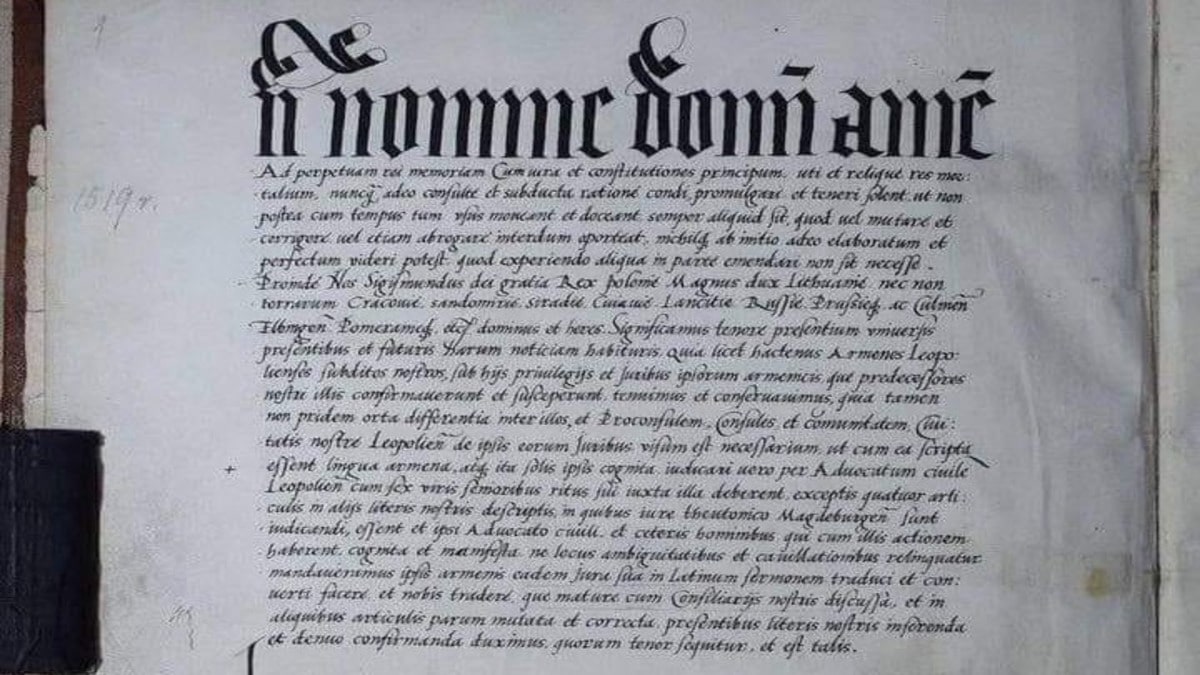 In nomine Domī amē
Ad perpetuam rei memoriam Cum iura et constitutiones principum, uti et reliquę res mor:
talium, nuncq̃ adeo consulte et subducta ratione condi, promulgari et teneri solent, ut non
postea cum tempus tum usus moueant et doceant semper aliquid sit, quod uel mutare et
corrigere uel etiam abrogare interdum oporteat, nichilq̃ ab initio adeo elaboratum et
perfectum videri potest quod experiendo aliqua in parte emendari non sit necesse.
Proindé Nos Sigismundus dei gratia Rex Polonię Magnus dux Lithuanię, nec non
terrarum Cracouię, sandomirię, Siradię, Cuiauię Lancitię Russię, Prussięq̃ ac Culmeñ
Elbingeñ Pomeranięq̃, etc̃ dominus et heres. Significamus tenore presentium vniuersis
presentibus et futuris harum noticiam habituris, quia licet hactenus Armenos Leopo:
lienses subditos nostros, sub hijs priuilegijs et Juribus ipsorum armenicis, que predecessores
nostri illis confirmauerunt et susceperunt, tenuimus et conseruauimus, quia tamen
non pridem orta differentia inter illos, et Proconsulem, Consules, et comunitatem, Ciui:
tatis nostrę Leopolieñ de ipsis eorum Juribus, visum est necessarium, ut cum ea scripta
+ essent lingua armena, atq̃ ita solis ipsis cognita, iudicari uero per Aduocatum ciuilé
Leopolieñ cum sex viris senioribus ritus sui iuxta illa deberent, exceptis quatuor arti:
culis in alijs literis nostris descriptis, in quibus iure theutonico Magdeburgeñ sunt
iudicandi, essent et ipsi Aduocato ciuili, et ceteris hominibus, qui cum illis actionem
haberent, cognita et manifesta, ne locus ambiguitatibus et cauillationibus relinquatur
mandaueramus ipsis armenis eadem Jura sua in Latinum sermonem traduci et con:
uerti facere, et nobis tradere, que mature cum Consiliarijs nostris discussa, et in
aliquibus articulis parum mutata et correcta, presentibus literis nostris inserenda
et denuo confirmanda duximus, quorum tenor sequitur, et est talis.
1519 r.